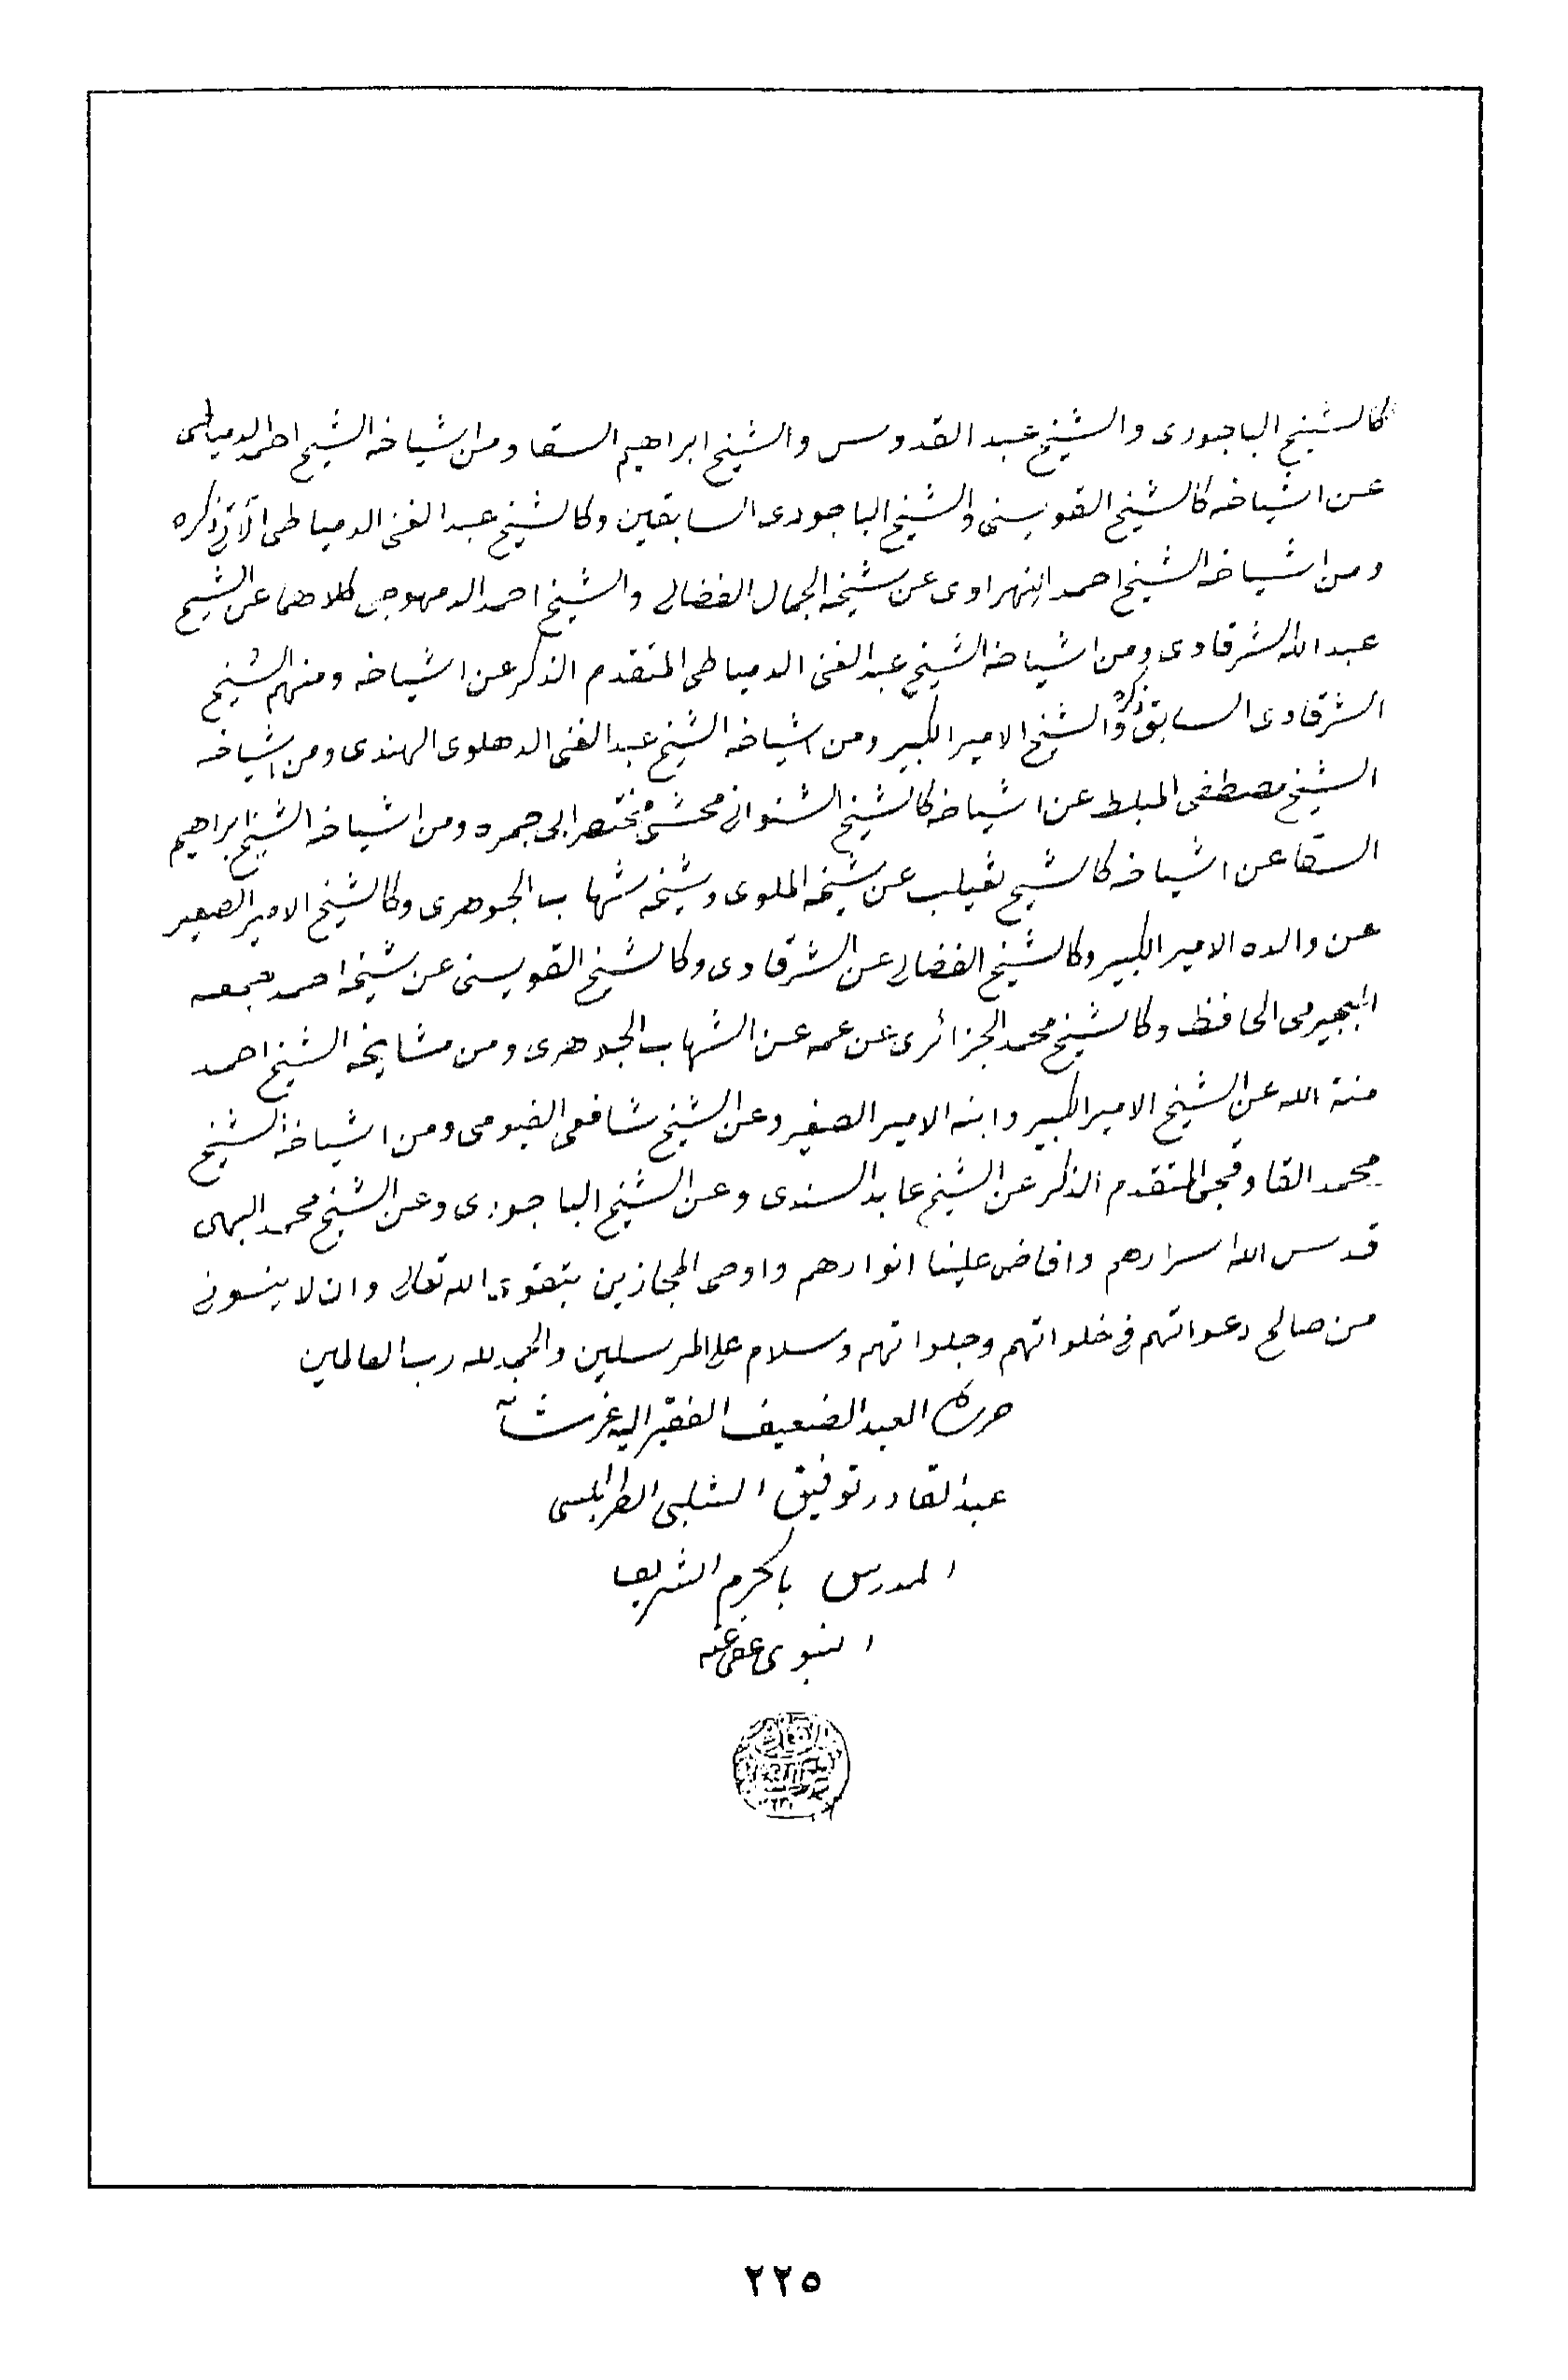 كالشيخ الباجوري والشيخ عبد القدوس والشيخ ابراهيم السقا ومن اشياخه الشيخ احمد الدمياطى
عن اشياخه كالشيخ القويسنى والشيخ الباجورى السابقين وكالشيخ عبد الغنى الدمياطى الآتي ذكره
ومن اشياخه الشيخ احمد النهراوى عن شيخه الجمال الفضالي والشيخ احمد الدمهوجى كلاهما عن الشيخ
عبد الله الشرقاوى ومن اشياخه الشيخ عبد الغنى الدمياطى المتقدم الذكر عن اشياخه ومنهم الشيخ
الشرقاوى السابق ذكره والشيخ الامير الكبير ومن اشياخه الشيخ عبد الغنى الدهلوى الهندى ومن اشياخه
الشيخ مصطفى المبلط عن اشياخه كالشيخ الشنوانى محشى مختصر ابى جمره ومن اشياخه الشيخ ابراهيم
السقا عن اشياخه كالشيخ ثعيلب عن شيخه الملوى وشيخه شهاب الجوهرى وكالشيخ الامير الصغير
عن والده الامير الكبير وكالشيخ الفضالي عن الشرقاوى وكالشيخ القويسنى عن شيخه احمد جمعه
البجيرمى الحافظ وكالشيخ محمد الجزائرى عن عمه عن الشهاب الجوهرى ومن مشايخه الشيخ احمد
منة الله عن الشيخ الامير الكبير وابنه الامير الصغير وعن الشيخ شافعى الفيومى ومن اشياخه الشيخ
محمد القاوقجى المتقدم الذكر عن الشيخ عابد السندى وعن الشيخ الباجورى وعن الشيخ محمد البهى
قدس الله اسرارهم وافاض علينا انوارهم واوصى المجازين بتقوى الله تعالى وان لا ينسونى
من صالح دعواتهم فى خلواتهم وجلواتهم وسلام على المرسلين والحمد لله رب العالمين
حرره العبد الضعيف الفقير اليه عز شأنه
عبد القادر توفيق الشلبى الطرابلسى
المدرس بالحرم الشريف
النبوى عفى عنه
٢٢٥